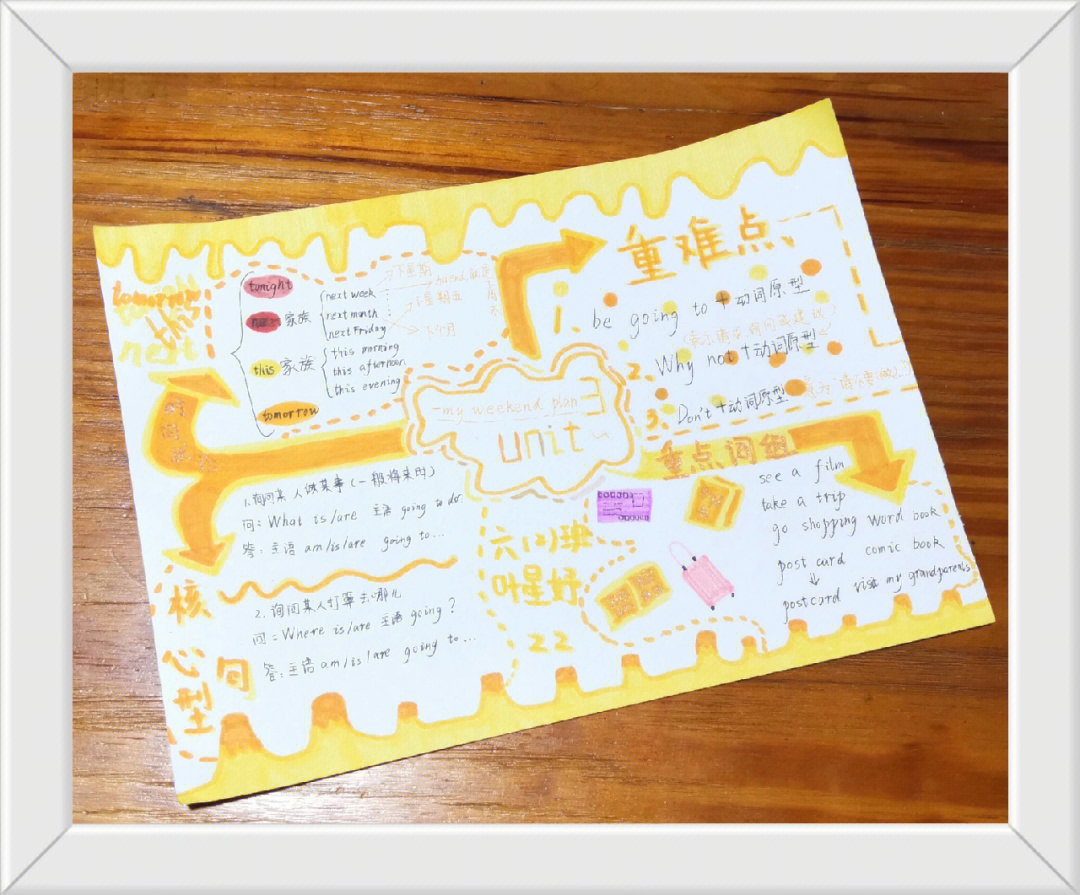 tomorrow
this
next
tonight
next 家族
next week
next month
next Friday
下星期
下个月
this 家族
this morning
this afternoon
this evening
tomorrow
重难点
1. be going to + 动词原型
2. Why not + 动词原型
3. Don't + 动词原型
my weekend plan
unit 3
重点词组
see a film
take a trip
go shopping word book
post card comic book
↓
postcard visit my grandparents
1. 询问某人做某事(一般将来时)
问: What is/are 主语 going to do
答: 主语 am/is/are going to...
2. 询问某人打算去哪儿
问: Where is/are 主语 going?
答: 主语 am/is/are going to...
核心
句型
六(2)班
叶星妤
22